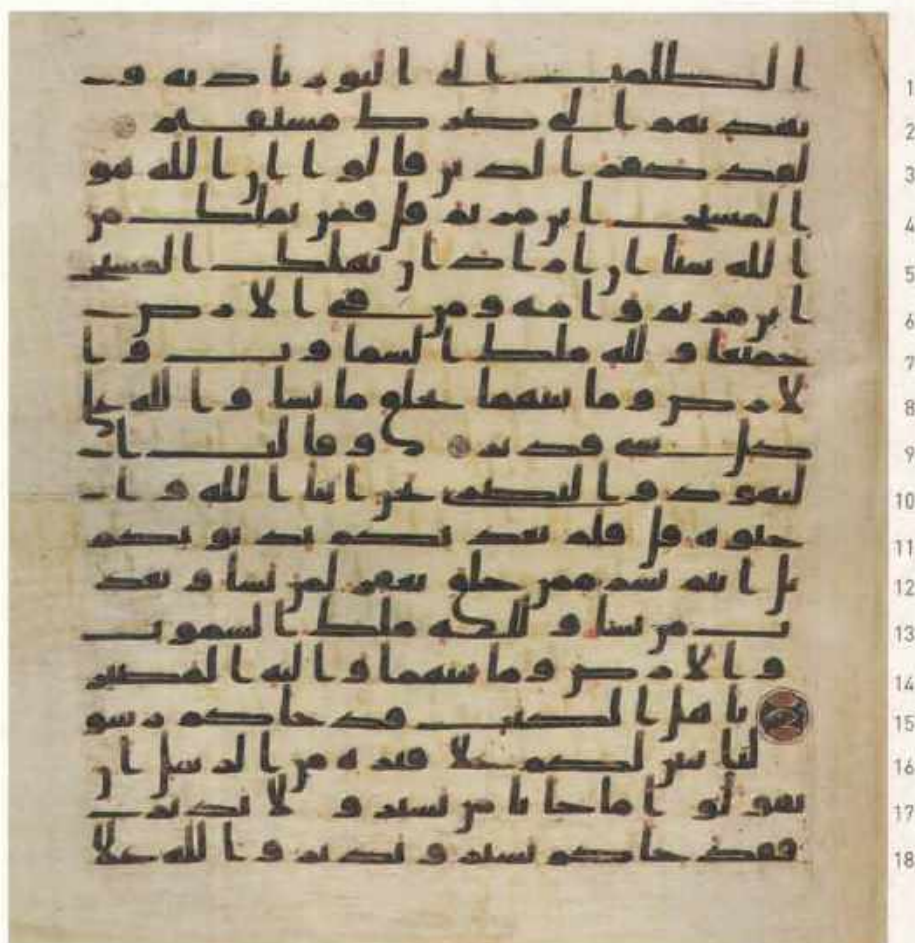 الظلمت الى النور باذنه و 1
يهديهم الى صرط مستقيم 2
لقد كفر الذين قالوا ان الله هو 3
المسيح ابن مريم قل فمن يملك من 4
الله شيا ان اراد ان يهلك المسيح 5
ابن مريم وامه ومن في الارض 6
جميعا ولله ملك السماوت وا 7
لارض وما بينهما يخلق ما يشا والله علا 8
كل شى قدير وقالت ا 9
ليهود والنصرى نحن ابنا الله وا 10
حبوه قل فلم يعذبكم بذنوبكم 11
بل انتم بشر ممن خلق يغفر لمن يشا ويعذ 12
ب من يشا ولله ملك السموت 13
والارض وما بينهما واليه المصير 14
ياهل الكتب قد جاكم رسو 15
لنا يبين لكم علا فترة من الرسل ان 16
تقولوا ما جانا من بشير ولا نذير 17
فقد جاكم بشير ونذير والله علا 18